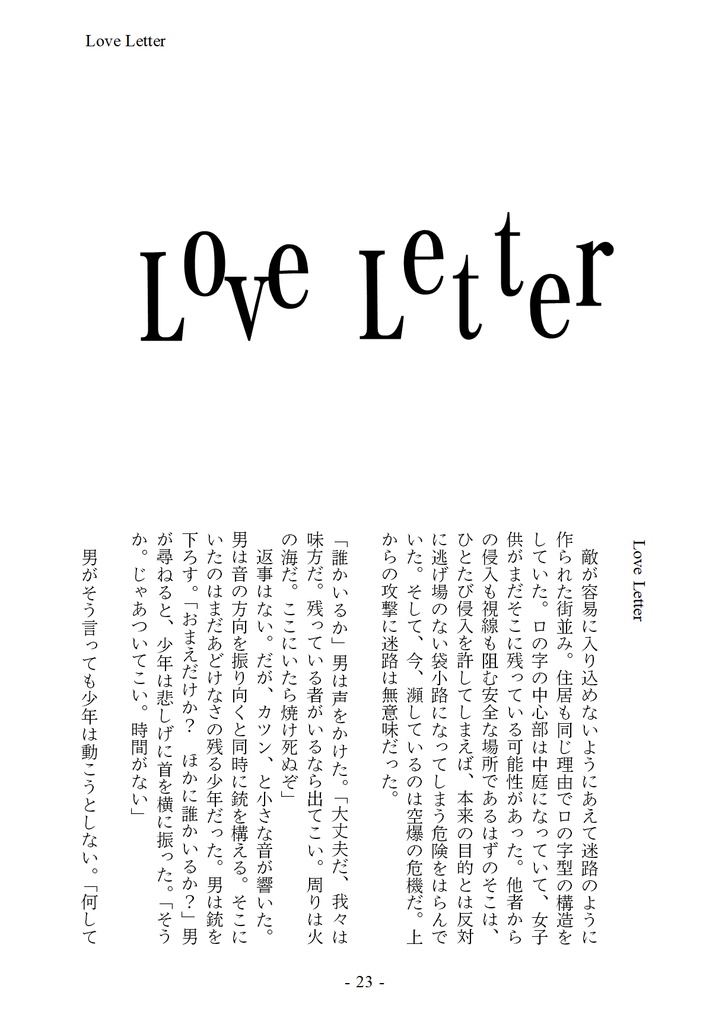 Love Letter
Love Letter
Love Letter
　敵が容易に入り込めないようにあえて迷路のように
作られた街並み。住居も同じ理由でロの字型の構造を
していた。ロの字の中心部は中庭になっていて、女子
供がまだそこに残っている可能性があった。他者から
の侵入も視線も阻む安全な場所であるはずのそこは、
ひとたび侵入を許してしまえば、本来の目的とは反対
に逃げ場のない袋小路になってしまう危険をはらんで
いた。そして、今、瀕しているのは空爆の危機だ。上
からの攻撃に迷路は無意味だった。
「誰かいるか」男は声をかけた。「大丈夫だ、我々は
味方だ。残っている者がいるなら出てこい。周りは火
の海だ。ここにいたら焼け死ぬぞ」
　返事はない。だが、カツン、と小さな音が響いた。
男は音の方向を振り向くと同時に銃を構える。そこに
いたのはまだあどけなさの残る少年だった。男は銃を
下ろす。「おまえだけか？　ほかに誰かいるか？」男
が尋ねると、少年は悲しげに首を横に振った。「そう
か。じゃあついてこい。時間がない」
　男がそう言っても少年は動こうとしない。「何して
- 23 -